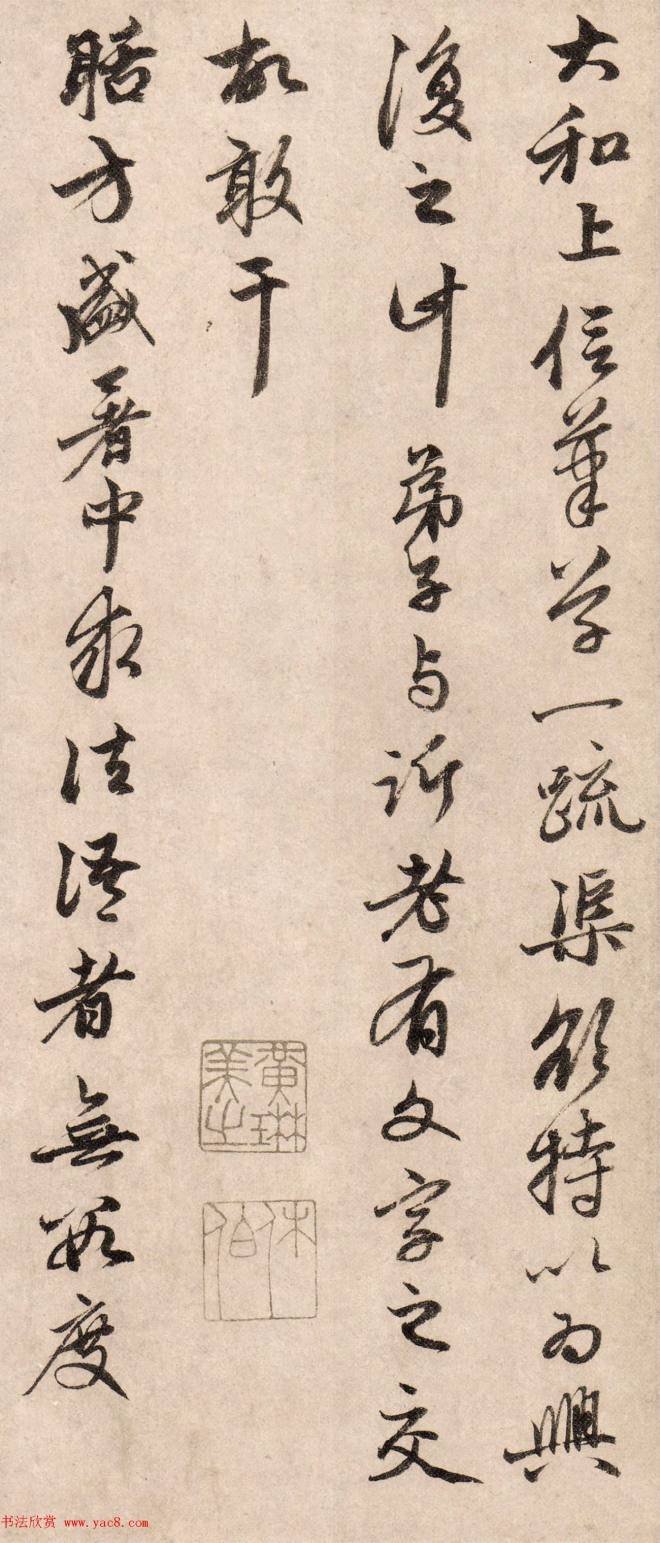 大和上信筆草一疏渠欲持以為興
復之計弟子与訢老有文字之交
故敢干
聒方盛暑中求法語者無數度
黄琳美之
休伯
书法欣赏 www.yac8.com